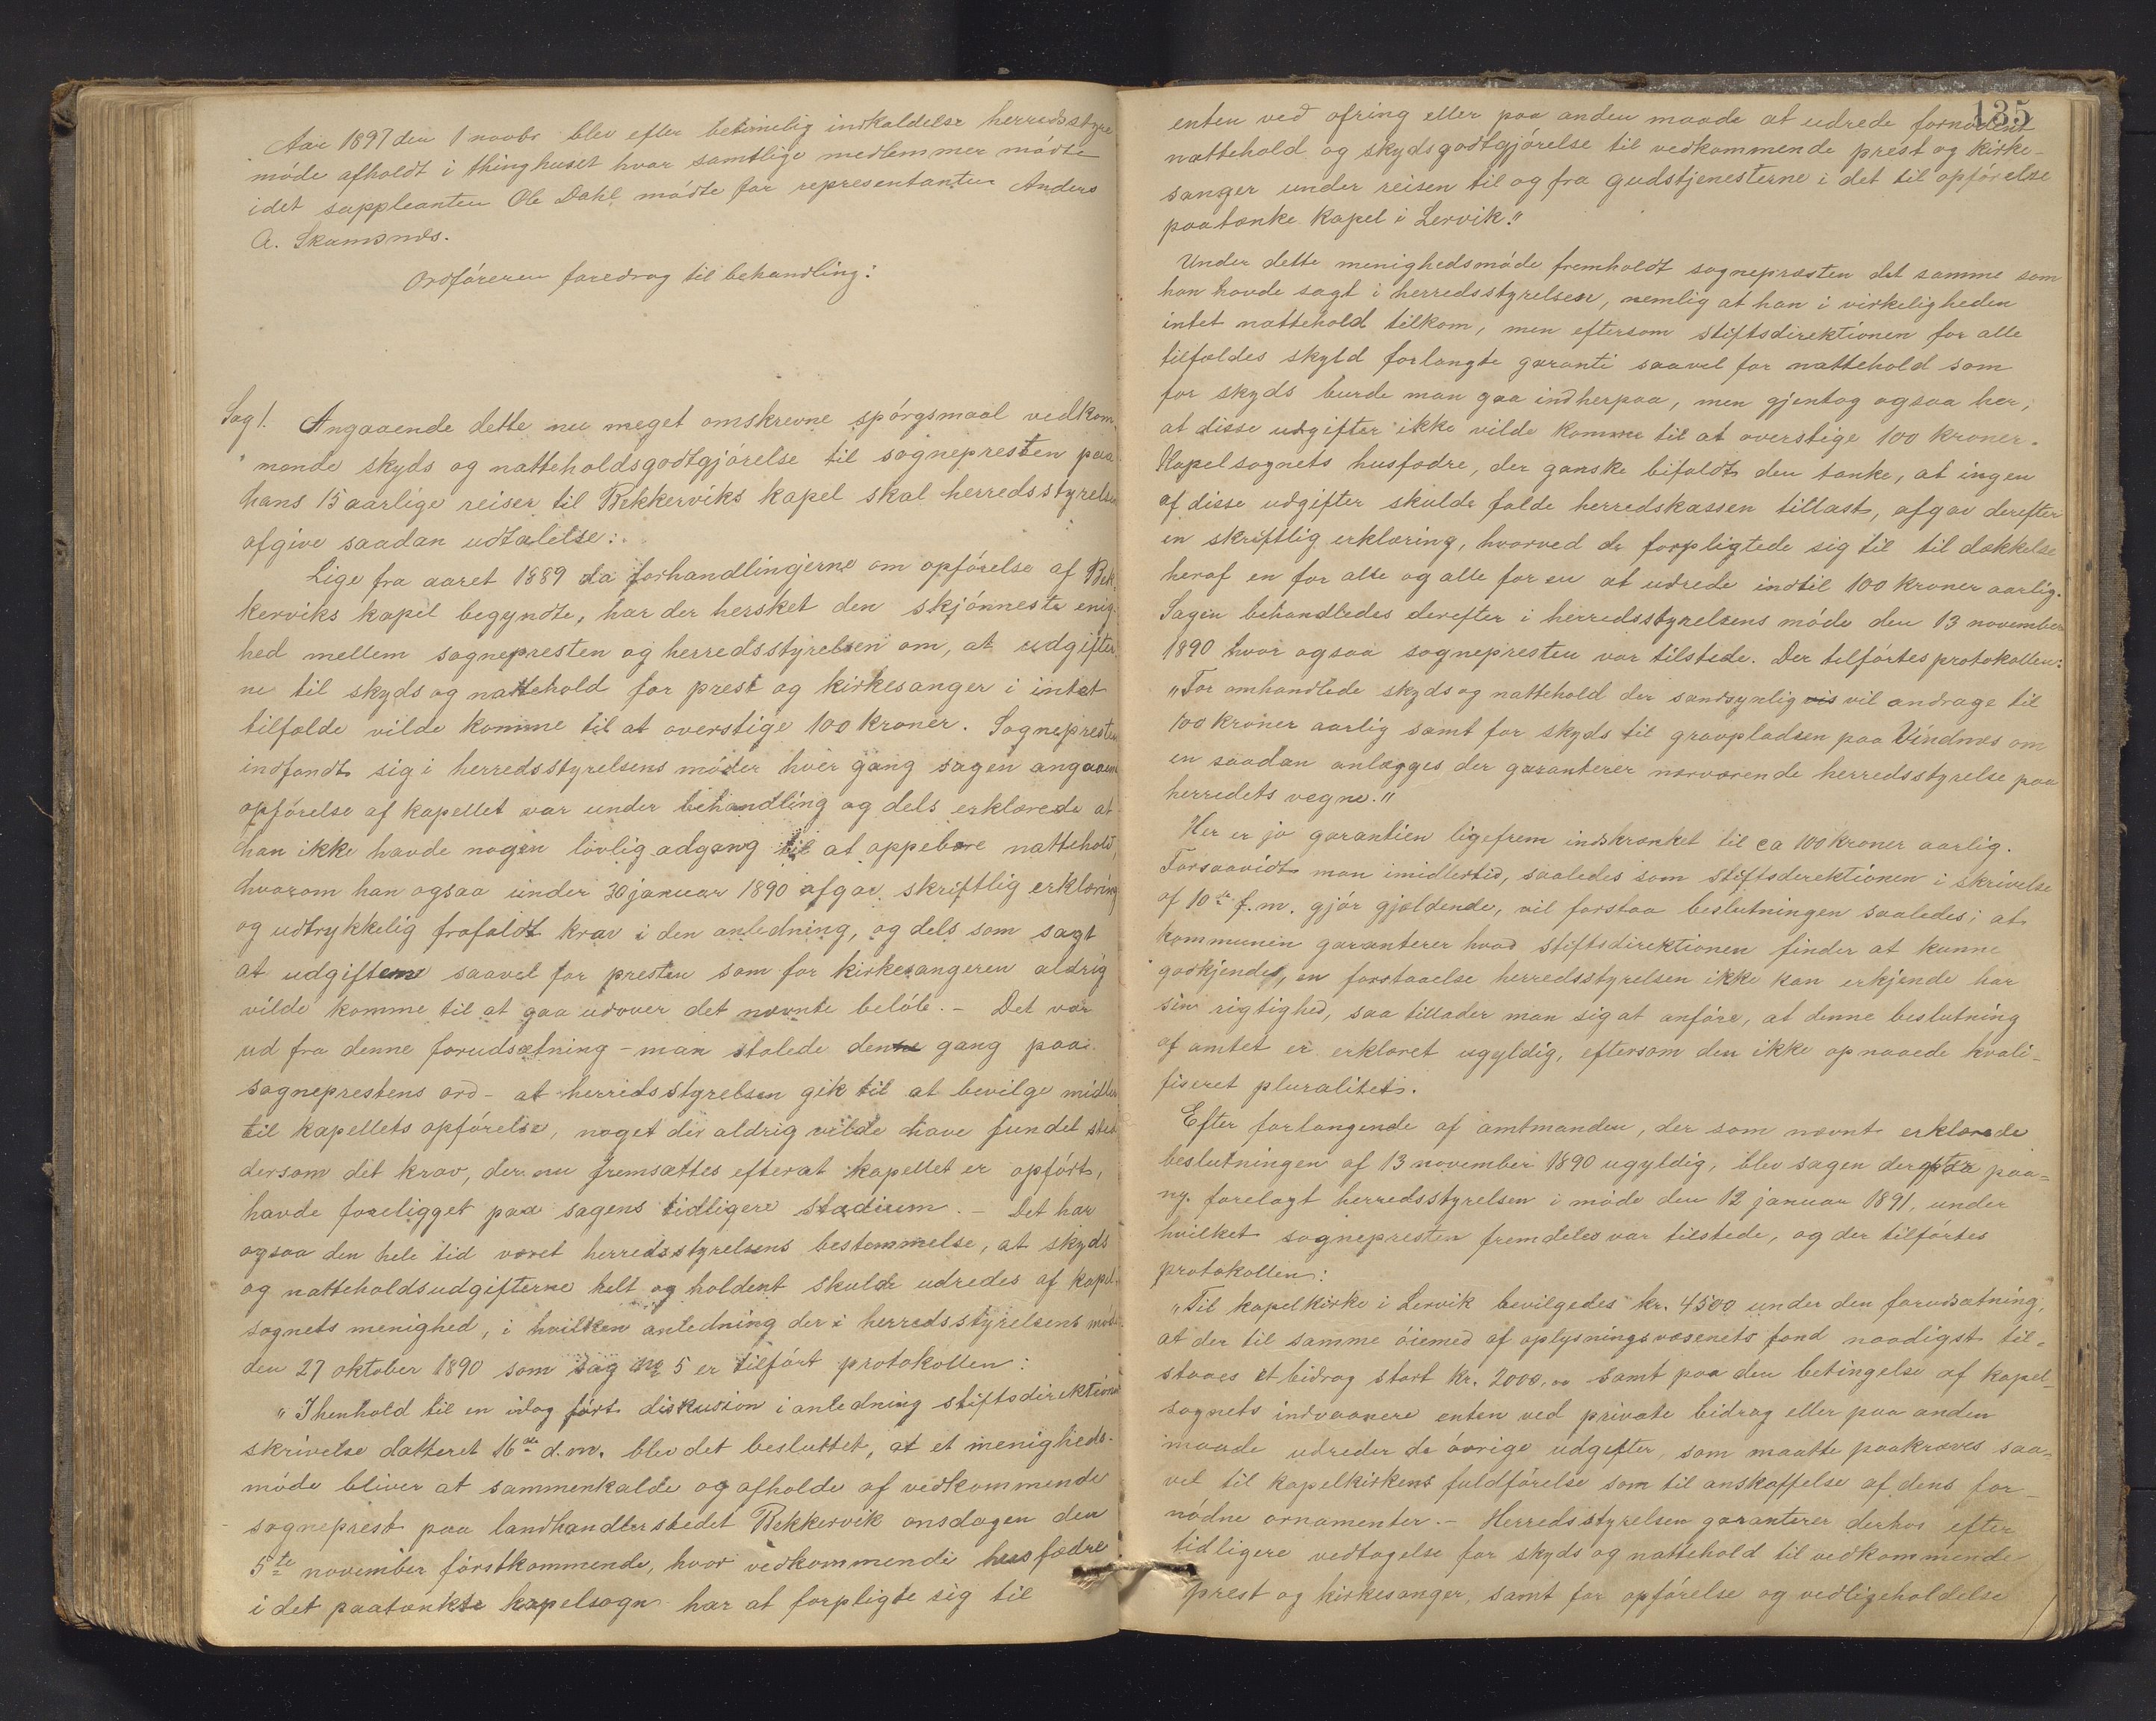 Aar 1897 den 1 novbr blev efter betimelig indkaldelse herredsstyre
möde afholdt i thinghuset hvor samtlige medlemmer mödte
idet suppleanten Ole Dahl mödte for representanten Anders
A. Skamsnæs.
Ordföreren foredrog til behandling:
Sag 1. Angaaende dette nu meget omskrevne spörgsmaal vedkom-
mende skyds og natteholdsgodtgjörelse til sognepresten paa
hans 15 aarlige reiser til Bekkerviks kapel skal herredsstyrelsen
afgive saadan udtalelse:
Lige fra aaret 1889 da forhandlingerne om opförelse af Bek-
kerviks kapel begyndte, har der hersket den skjönneste enig-
hed mellem sognepresten og herredsstyrelsen om, at udgifter-
ne til skyds og nattehold for prest og kirkesanger i intet
tilfælde vilde komme til at overstige 100 kroner. Sognepresten
indfandt sig i herredsstyrelsens möder hver gang sagen angaaende
opförelse af kapellet var under behandling og dels erklærede at
han ikke havde nogen lovlig adgang til at oppebære nattehold,
hvorom han ogsaa under 30 januar 1890 afgav skriftlig erklæring
og udtrykkelig frafaldt krav i den anledning, og dels som sagt
at udgifterne saavel for presten som for kirkesangeren aldrig
vilde komme til at gaa udover det nævnte belöb. - Det var
ud fra denne forudsætning - man stolede denne gang paa
sogneprestens ord - at herredsstyrelsen gik til at bevilge midler
til kapellets opförelse, noget der aldrig vilde have fundet sted
dersom det krav, der nu fremsættes efterat kapellet er opfört,
havde foreligget paa sagens tidligere stadium. - Det har
ogsaa den hele tid været herredsstyrelsens bestemmelse, at skyds
og natteholdsudgifterne helt og holdent skulde udredes af kapel-
sognets menighed, i hvilken anledning der i herredsstyrelsens möde
den 27 oktober 1890 som sag no 5 er tilfört protokollen:
"I henhold til en idag fört diskusion i anledning stiftsdirektionens
skrivelse datteret 16de d.m. blev det besluttet, at et menigheds-
möde bliver at sammenkalde og afholde af vedkommende
sogneprest paa landhandlerstedet Bekkervik onsdagen den
5te november förstkommende, hvor vedkommende husfædre
i det paatænkte kapelsogn har at forpligte sig til
135
enten ved ofring eller paa anden maade at udrede fornödent
nattehold og skydsgodtgjörelse til vedkommende prest og kirke-
sanger under reisen til og fra gudstjenesterne i det til opförelse
paatænke kapel i Lervik."
Under dette menighedsmöde fremholdt sognepræsten det samme som
han havde sagt i herredsstyrelsen, nemlig at han i virkeligheden
intet nattehold tilkom, men eftersom stiftsdirektionen for alle
tilfældes skyld forlangte garanti saavel for nattehold som
for skyds burde man gaa ind herpaa, men gjentog ogsaa her,
at disse udgifter ikke vilde komme til at overstige 100 kroner.
Kapelsognets husfædre, der ganske bifaldt den tanke, at ingen
af disse udgifter skulde falde herredskassen tillast, afgav derefter
en skriftlig erklæring, hvorved de forpligtede sig til til dækkelse
heraf en for alle og alle for en at udrede indtil 100 kroner aarlig.
Sagen behandledes derefter i herredsstyrelsens möde den 13 november
1890 hvor ogsaa sognepresten var tilstede. Der tilförtes protokollen:
"For omhandlede skyds og nattehold der sandsynligvis vil andrage til
100 kroner aarlig samt for skyds til gravpladsen paa Vindnæs om
en saadan anlægges der garanterer nærværende herredsstyrelse paa
herredets vegne."
Her er jo garantien ligefrem indskrænket til ca 100 kroner aarlig.
Forsaavidt man imidlertid, saaledes som stiftsderektionen i skrivelse
af 10de f.m. gjör gjældende, vil forstaa beslutningen saaledes, at
kommunen garanterer hvad stiftsdirektionen finder at kunne
godkjendes, en forstaaelse herredsstyrelsen ikke kan erkjende har
sin rigtighed, saa tillader man sig at anföre, at denne beslutning
af amtet er erklæret ugyldig, eftersom den ikke opnaaede kvali-
fiseret pluralitet.
Efter forlangende af amtmanden, der som nævnt erklærede
beslutningen af 13 november 1890 ugyldig, blev sagen derefter paa-
ny. forelagt herredsstyrelsen i möde den 12 januar 1891, under
hvilket sognepresten fremdeles var tilstede, og der tilförtes
protokollen:
"Til kapelkirke i Lervik bevilgedes kr. 4500 under den forudsætning,
at der til samme öiemed af oplysningsvæsenets fond naadigst til-
staaes et bidrag stort kr. 2000,00 samt paa den betingelse af kapel-
sognets indvaanere enten ved private bidrag eller paa anden
maade udreder de övrige udgefter, som maatte paakræves saa-
vel til kapelkirkens fuldförelse som til anskaffelse af dens for-
nödne ornamenter. - Herredsstyrelsen garanterer derhos efter
tidligere vedtagelse for skyds og nattehold til vedkommende
prest og kirkesanger, samt for opförelse og vedligeholdelse